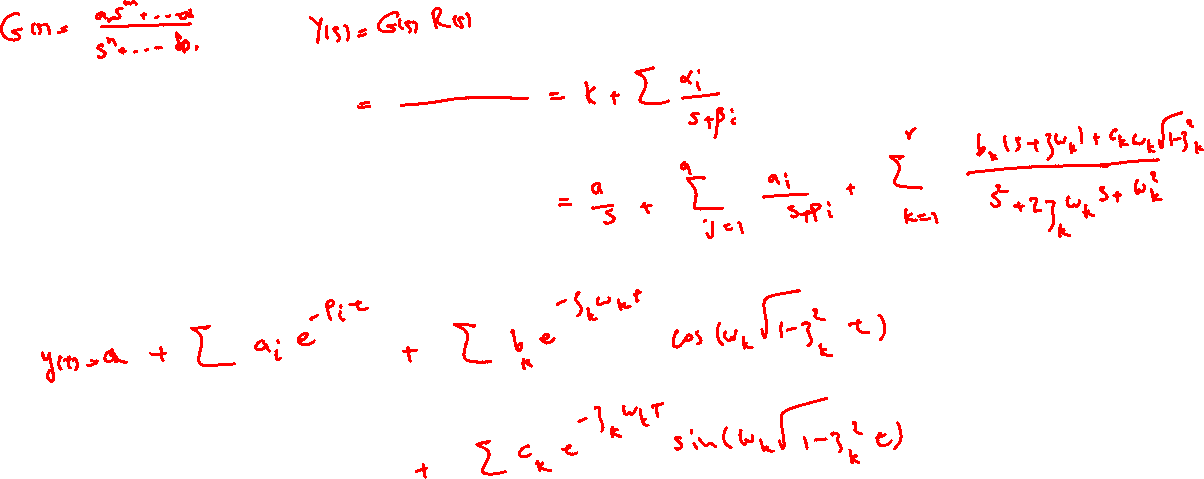 G(s) = (a₀s^m + ... a) / (s^n + ... b₁)    Y(s) = G(s) R(s)
= ——— = k + Σ αᵢ / (s+βᵢ)
= a/s + Σ_{j=1}^{q} aᵢ / (s+pᵢ) + Σ_{k=1}^{r} (b_k (s+ζω_k) + c_k ω_k √(1-ζ_k²)) / (s² + 2ζ_k ω_k s + ω_k²)
y(t) = a + Σ aᵢ e^{-pᵢt} + Σ b_k e^{-ζ_k ω_k t} cos(ω_k √(1-ζ_k²) t)
+ Σ c_k e^{-ζ_k ω_k t} sin(ω_k √(1-ζ_k²) t)